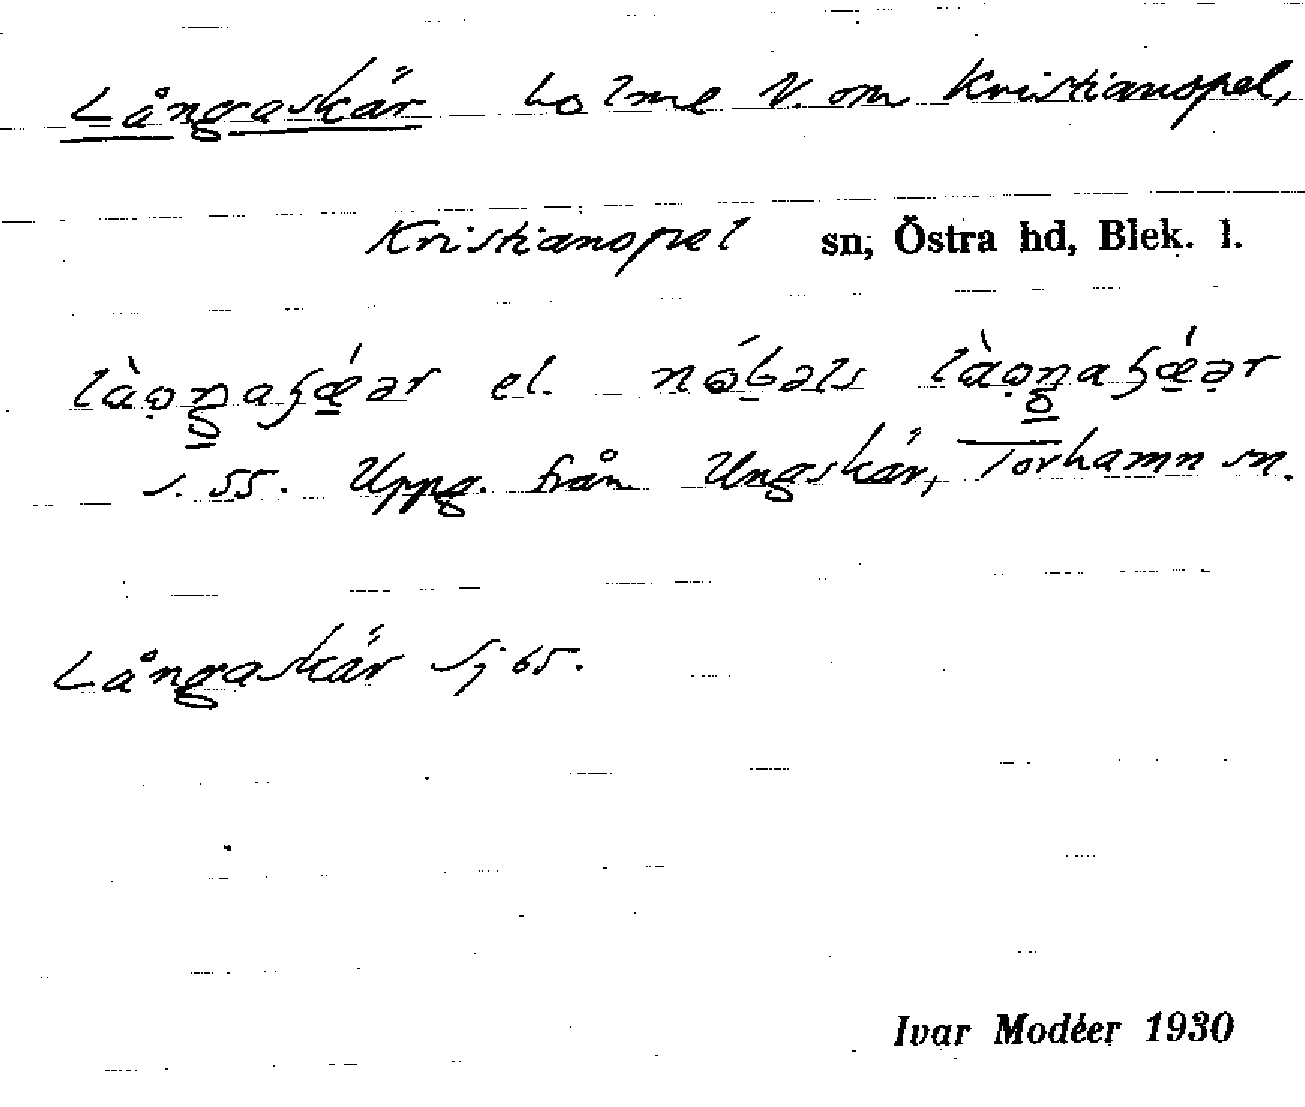 Långaskär holme V. om Kristianopel,
Kristianopel sn, Östra hd, Blek. l.
el.
s. 55. Uppg. från Ungskär, Torhamn sn.
Långaskär Sj 65.
Ivar Modéer 1930